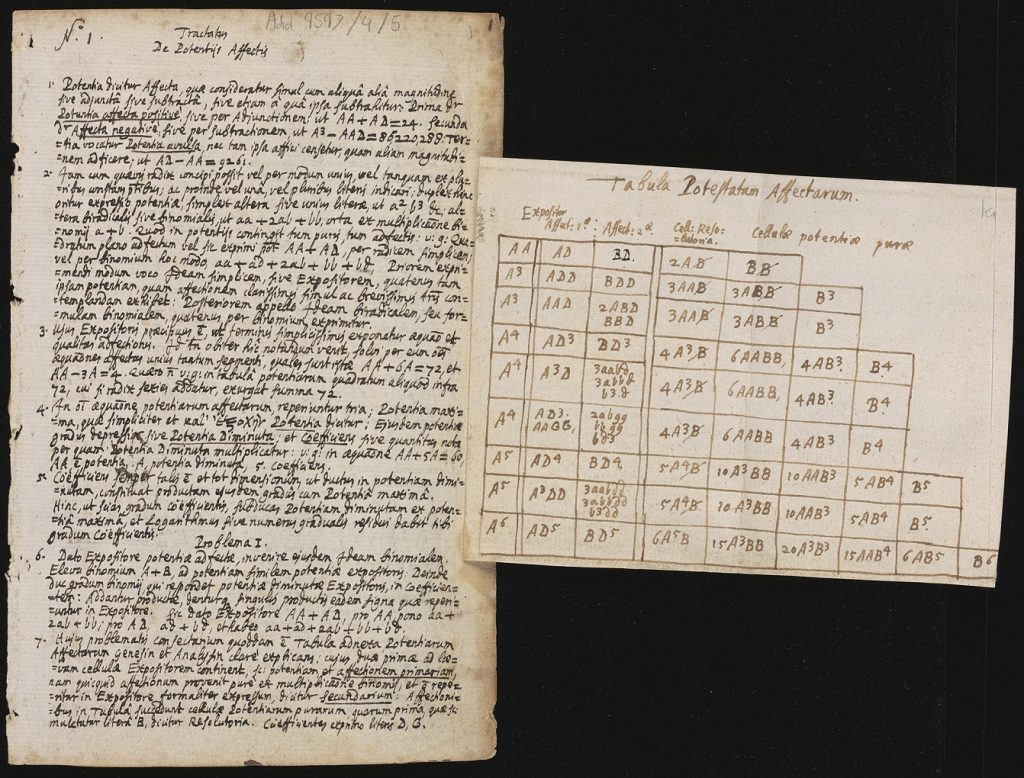 Add 9597/4/5
1
N.º 1.
Tractatus
De Potentijs Affectis
1. Potentia dicitur Affecta, quæ consideratur simul cum aliquâ aliâ magnitudine
sive adjunctâ sive subtractâ, sive etiam a quâ ipsa subtrahitur: Prima dr
Potentia affecta positivè, sive per Adjunctionem, ut AA+AD=24. Secunda
dr Affecta negativè, sive per subtractionem, ut A3-AAD=85220,288: Ter=
=tia vocatur Potentia avulsa, nec tam ipsa affici censetur, quam aliam magnitudi=
=nem adficere; ut AD-AA=9261.
2. Tam cum quævis radix concipi possit vel per modum unius, vel tanquam ex plu=
=ribus constans ptibus; ac proinde vel unâ, vel pluribus literis indicari; duplex hinc
oritur expressio potentiæ, simplex altera sive unius literæ, ut a2 b3 &c; al=
=tera biradicalis sive binomialis, ut aa+2ab+bb, orta ex multiplicaõne bi=
=nomij a+b. Quod in potentijs contingit tum puris, tum adfectis: v:g: Qua=
=dratum plano adfectum vel sic exprimi pot AA+AD, per radicem simplicem;
vel per binomium hoc modo, aa+ad+2ab+bb+bd. Priorem expri=
=mendi modum voco Ideam simplicem, sive Expositorem, quatenus tam
ipsam potentiam, quam affectionem clarissimis simul ac brevissimis
templandam exhibet: Posteriorem appello Ideam biradicalem, seu for=
=mulam binomialem, quatenus per binomium exprimitur.
3. Usus Expositoris præcipuus ē, ut terminis simplicissimis exponatur æquaõ et
qualitas adfectionis. Id tn obiter hic notandum venit, solùm per eum
æquaõnes affectas unius tantum segmenti, quales sunt istæ AA+6A=72, et
AA-3A=4. Quæro n v:g: in tabulâ potentiarum quadratum aliquod infra
72, cui si radix sexies addatur, exurgat summa 72.
4. In æquaõne potentiarum affectarum, reperiuntur tria; Potentia maxi=
=ma, quæ simpliciter et Potentia dicitur; Ejusdem potentiæ
gradus depressior, sive Potentia Diminuta; et Coefficiens, sive quantitas nota
per quam Potentia Diminuta multiplicatur: v:g: in æquaõne AA+5A=60,
AA ē potentia, A, potentia diminuta, 5. coefficiens.
5. Coefficiens semper talis ē et tot dimensionum, ut ductus in potentiam dimi=
=nutam, constituat productum ejusdem gradûs cum Potentiâ maximâ.
Hinc, ut scias gradum coefficientis, subducas Potentiam diminutam ex poten=
=tiâ maximâ, et Logarithmus sive numerus gradualis residui dabit tibi
gradum Coefficientis.
Problema I.
6. Dato Expositore potentiæ adfectæ, invenire ejusdem Ideam binomialem.
Eleva binomium A+B, ad potentiam similem potentiæ expositoris: Deinde
duc gradum binomij qui respondet potentiæ diminutæ Expositoris, in Coefficien=
=tem: Addantur producta, denturq singulis productis eadem signa quæ reperi=
=untur in Expositore. Sic dato Expositore AA+AD, pro AA, pono aa+
2ab+bb; pro AD, ad+bd, et habeo aa+ad+2ab+bb+bd.
7. Hujus problematis consectarium quoddam ē Tabula adnexa Potentiarum
Affectarum genesin et Analysin clarè explicans; cujus duæ primæ ad læ=
=vam cellulæ Expositorem continent, sc: potentiam et affectionem primariam,
nam quicquid affectionum provenit pure ex multiplicaõne binomij, et repe=
=ritur in Expositore formaliter expressum, dicitur secundarium. Affectioni=
=bus in Tabulâ succedunt cellulæ Potentiarum purarum quarum prima quæ
mulctatur literâ B, dicitur Resolutoria. Coefficientes exprimo literis D, G.
Tabula Potestatum Affectarum.
Expositor
Affect: 1ª. Affect: 2ª. Cell: Reso=
=lutoria. Cellulæ potentiæ puræ
AA AD BD. 2AB BB
A3 ADD BDD 3AAB 3ABB B3
A3 AAD 2ABD
BBD 3AAB 3ABB B3
A4 AD3 BD3 4A3B 6AABB, 4AB3. B4
A4 A3D 3aabd
3abbd
b3d 4A3B 6AABB, 4AB3. B4
A4 AD3.
AAGG, 2abgg
bbgg
bd3 4A3B 6AABB 4AB3 B4
A5 AD4 BD4. 5A4B 10A3BB 10AAB3 5AB4 B5
A5 A3DD 3aabdd
3abbdd
b3dd 5A4B 10A3BB 10AAB3 5AB4 B5.
A6 AD5 BD5 6A5B 15A3BB 20A3B3 15AAB4 6AB5 B6